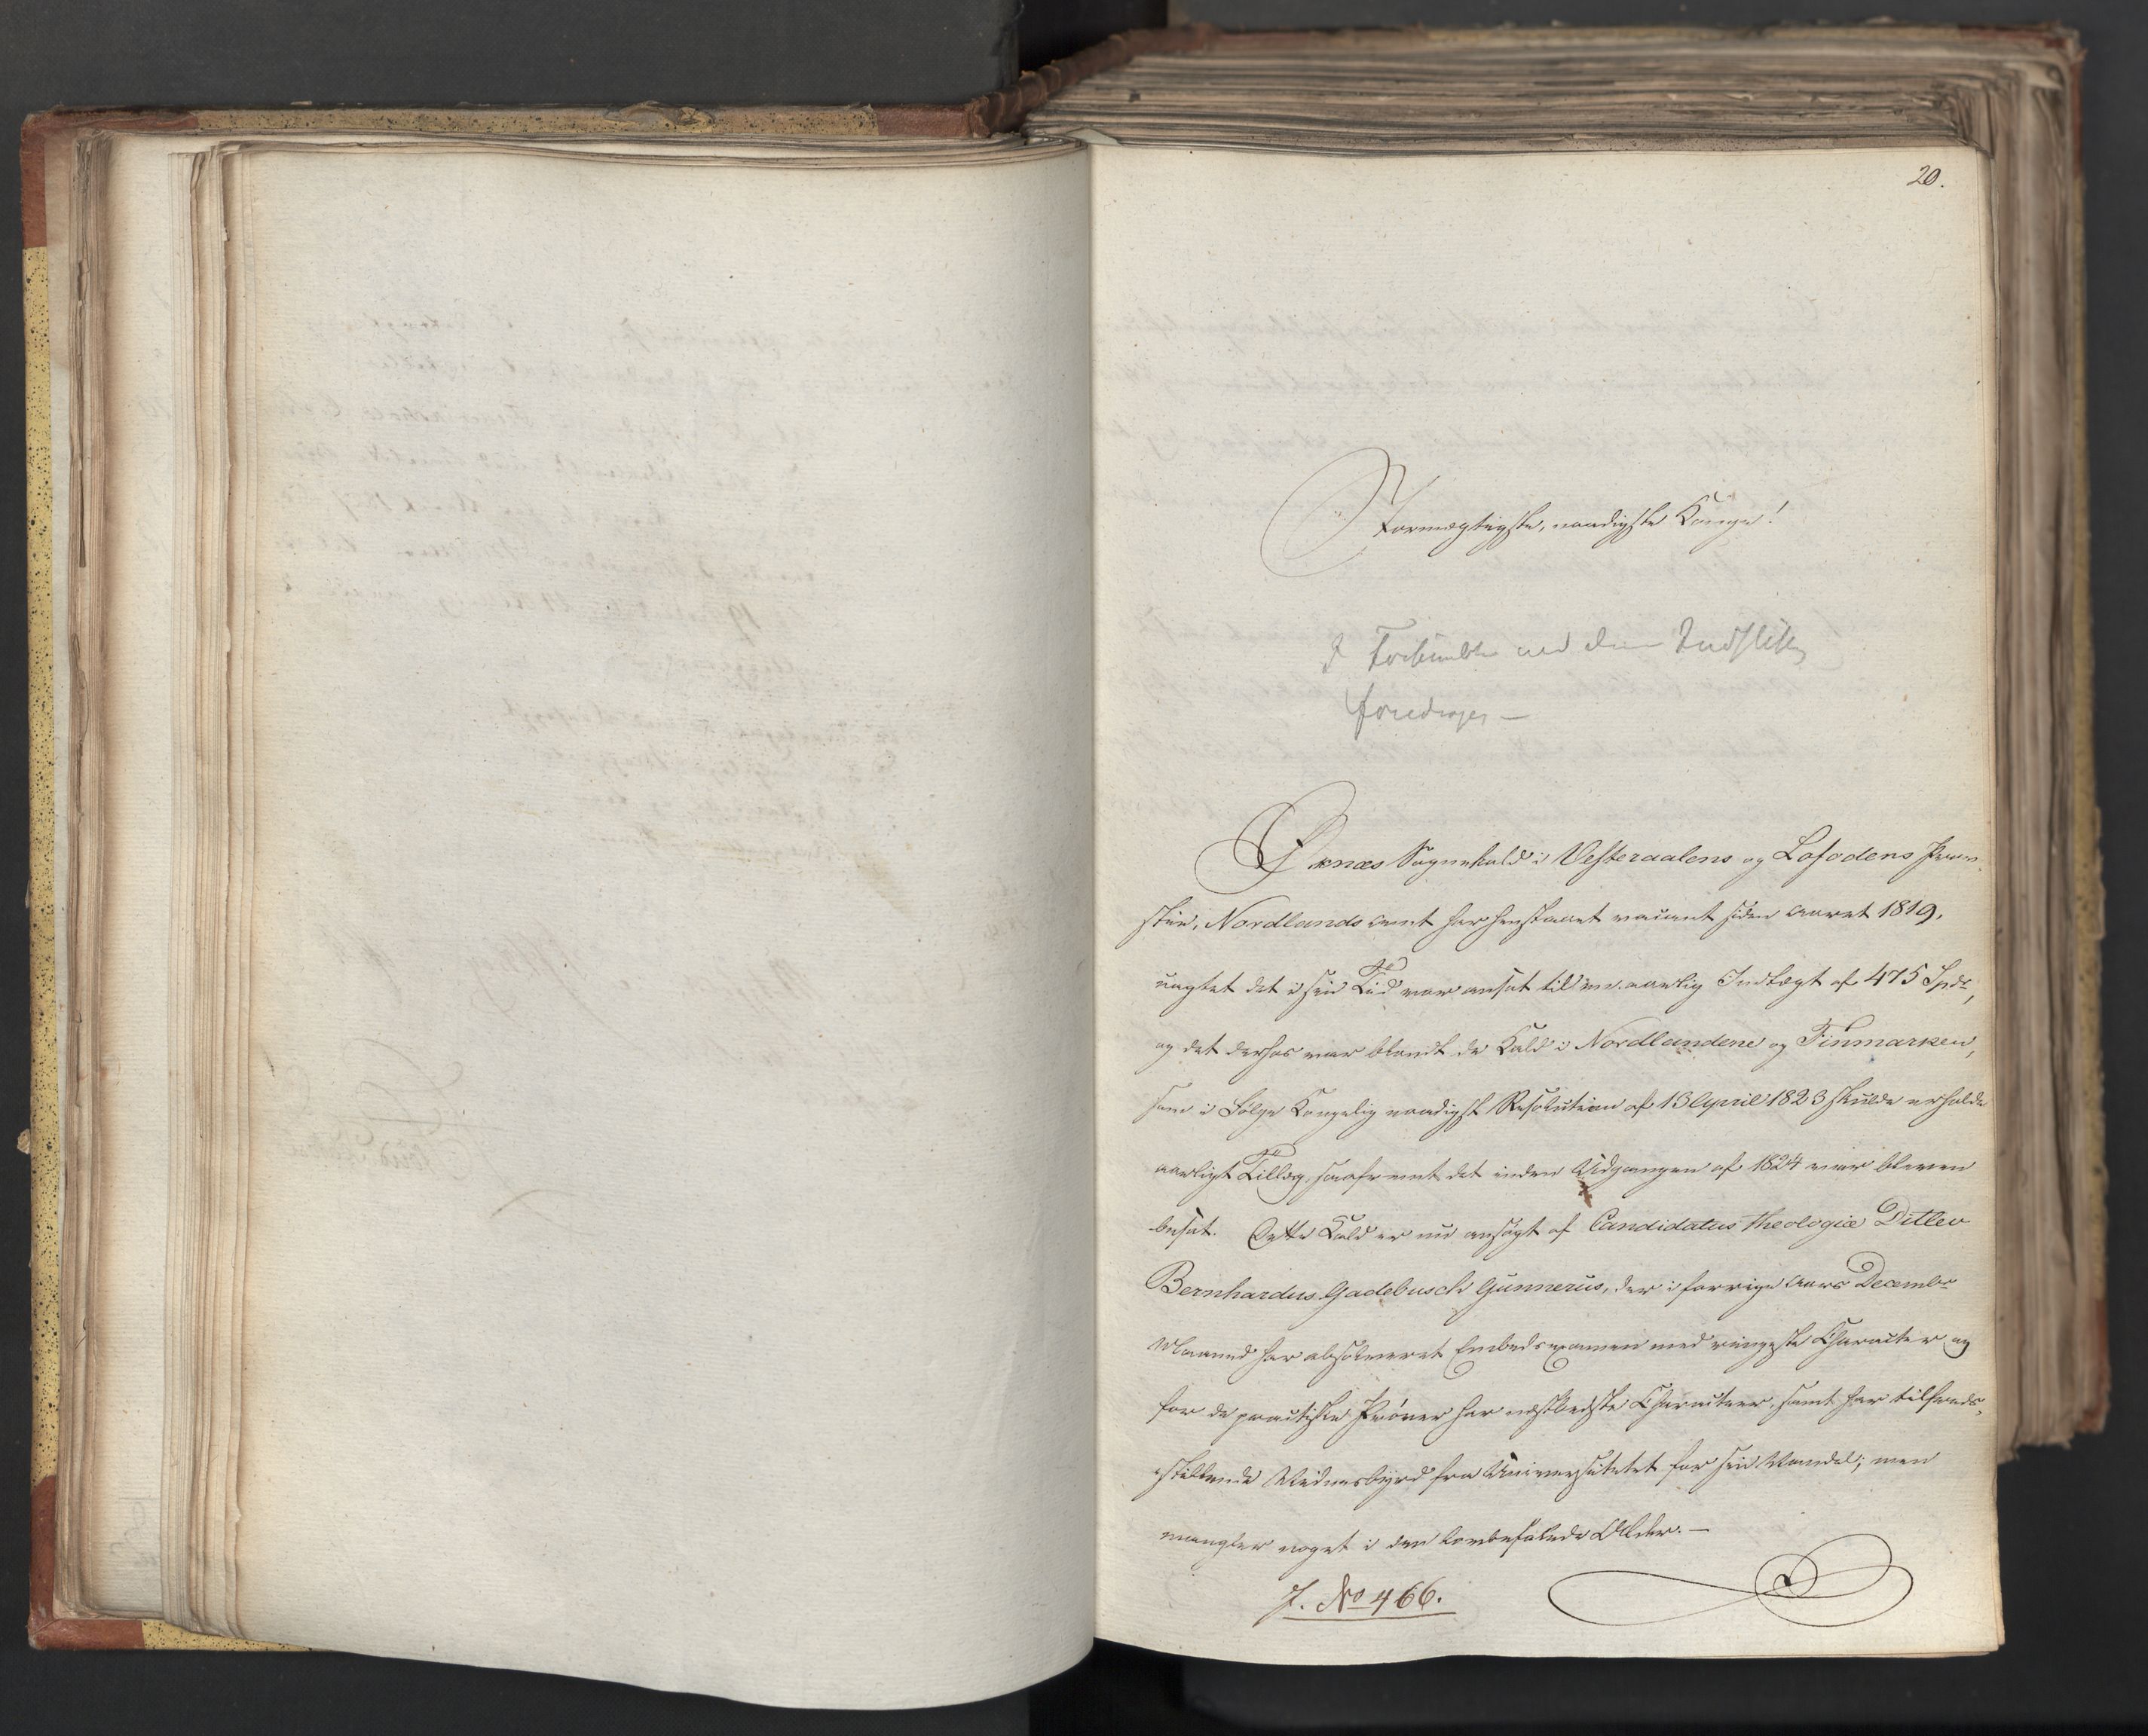 20.
Stormægtigste, naadigste Konge!
I Forbindelse med den Indstilling
foredrages —
Øxnæs Sognekald i Vesteraalens og Lofodens Prov-
stie, Nordlands Amt har henstaaet vacant siden Aaret 1819,
uagtet det i sin Tid var ansat til en aarlig Indtægt af 475 Spd,
og det derhos var blandt de Kald i Nordlandene og Finmarken,
som i Følge Kongelig naadigst Resolution af 13 April 1823 skulde erholde
aarligt Tillæg, saafremt det inden Udgangen af 1824 var bleven
besat. Dette Kald er nu ansøgt af Candidatus theologiæ Ditlev
Bernhardus Gadebusch Gunnerus, der i forrige Aars December
Maaned har absolveret Embedsexamen med ringeste Character og
for de practiske Prøver har næstbedste Characteer, samt har tilfreds-
stillende Vidnesbyrd fra Universitetet for sin Vandel; men
mangler noget i den lovbefalede Alder. —
J. No 466.